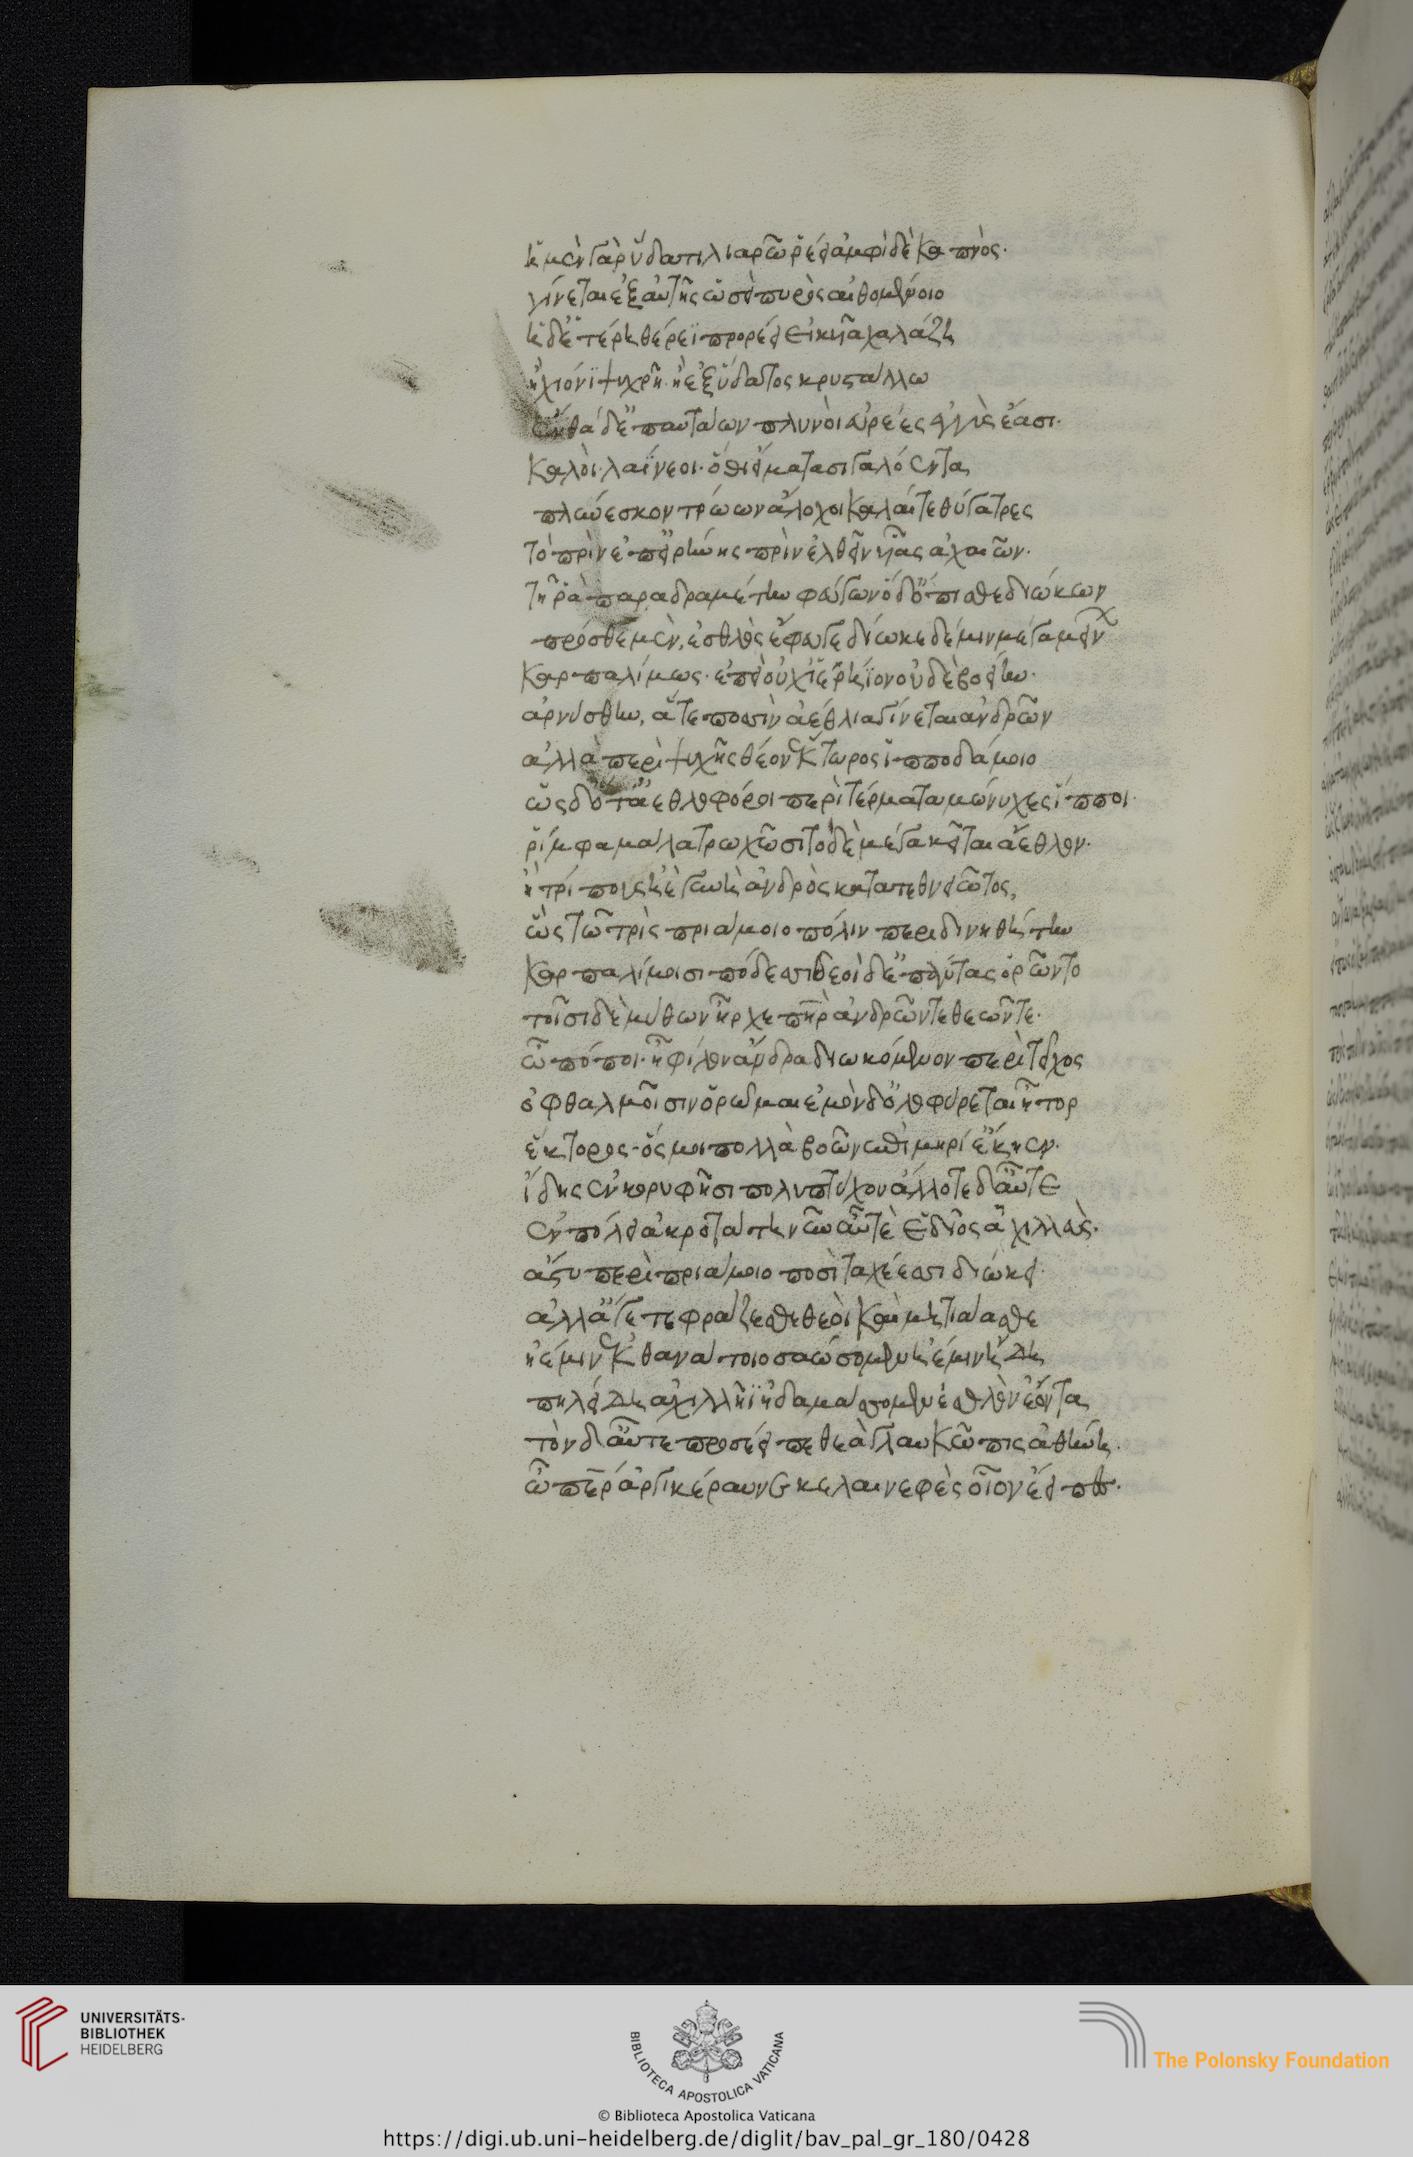 ἡ μὲν γὰρ ὕδατι λιαρῶ ῥέει ἀμφὶ δὲ καπνὸς·
γίνεται ἐξ αὐτῆς ὡσεὶ πυρὸς αἰθομένοιο
ἡ δ' ἑτέρη θέρεϊ προρέει εἰκυῖα χαλάζη
ἢ χιόνι ψυχρῆ· ἢ ἐξ ὕδατος κρυστάλλω
ἔνθα δ' ἐπ' αὐτάων πλυνοὶ εὐρέες ἐγγὺς ἔασι·
καλοὶ· λαΐνεοι· ὅθι εἵματα σιγαλόεντα
πλύνεσκον τρώων ἄλοχοι καλαί τε θύγατρες
τὸ πρὶν ἐπ' εἰρήνης πρὶν ἐλθεῖν υἷας ἀχαιῶν·
τῆ ῥα παραδραμέτην φεύγων ὁ δ' ὄπισθε διώκων
πρόσθε μὲν, ἐσθλὸς ἔφευγε δίωκε δέ μιν μέγ' ἀμείνων
καρπαλίμως· ἐπεὶ οὐχ ἱερήϊον οὐδὲ βοείην·
ἀρνύσθην, ἅ τε ποσσὶν ἀέθλια γίνεται ἀνδρῶν
ἀλλὰ περὶ ψυχῆς θέον ἕκτορος ἱπποδάμοιο
ὡς δ' ὅτ' ἀεθλοφόροι περὶ τέρματα μώνυχες ἵπποι·
ῥίμφα μάλα τρωχῶσι τὸ δὲ μέγα κεῖται ἄεθλον·
ἢ τρίπους ἠὲ γυνὴ ἀνδρὸς κατατεθνειῶτος,
ὣς τὼ τρὶς πριάμοιο πόλιν περιδινηθήτην
καρπαλίμοισι πόδεσσι θεοὶ δ' ἐπὶ πάντες ὁρῶντο
τοῖσι δὲ μύθων ἦρχε πατὴρ ἀνδρῶν τε θεῶν τε·
ὢ πόποι· ἦ φίλον ἄνδρα διωκόμενον περὶ τεῖχος
ὀφθαλμοῖσιν ὁρῶμαι ἐμὸν δ' ὀλοφύρεται ἦτορ
ἕκτορος· ὅς μοι πολλὰ βοῶν ἐπὶ μηρί' ἔκηεν·
ἴδης ἐν κορυφῆσι πολυπτύχου ἄλλοτε δ' αὖτε
ἐν πόλει ἀκροτάτη νῦν αὖτέ ἑ δῖος ἀχιλλεὺς·
ἄστυ περὶ πριάμοιο ποσὶ ταχέεσσι διώκει·
ἀλλ' ἄγετε φράζεσθε θεοὶ καὶ μητιάασθε
ἠέ μιν ἐκ θανάτοιο σαώσομεν ἠέ μιν ἤδη
πηλείδη ἀχιλλῆϊ δαμάσσομεν ἐσθλὸν ἐόντα
τὸν δ' αὖτε προσέειπε θεὰ γλαυκῶπις ἀθήνη·
ὦ πάτερ ἀργικέραυνε κελαινεφὲς οἷον ἔειπες·
UNIVERSITÄTS-
BIBLIOTHEK
HEIDELBERG
BIBLIOTECA APOSTOLICA VATICANA
The Polonsky Foundation
© Biblioteca Apostolica Vaticana
https://digi.ub.uni-heidelberg.de/diglit/bav_pal_gr_180/0428